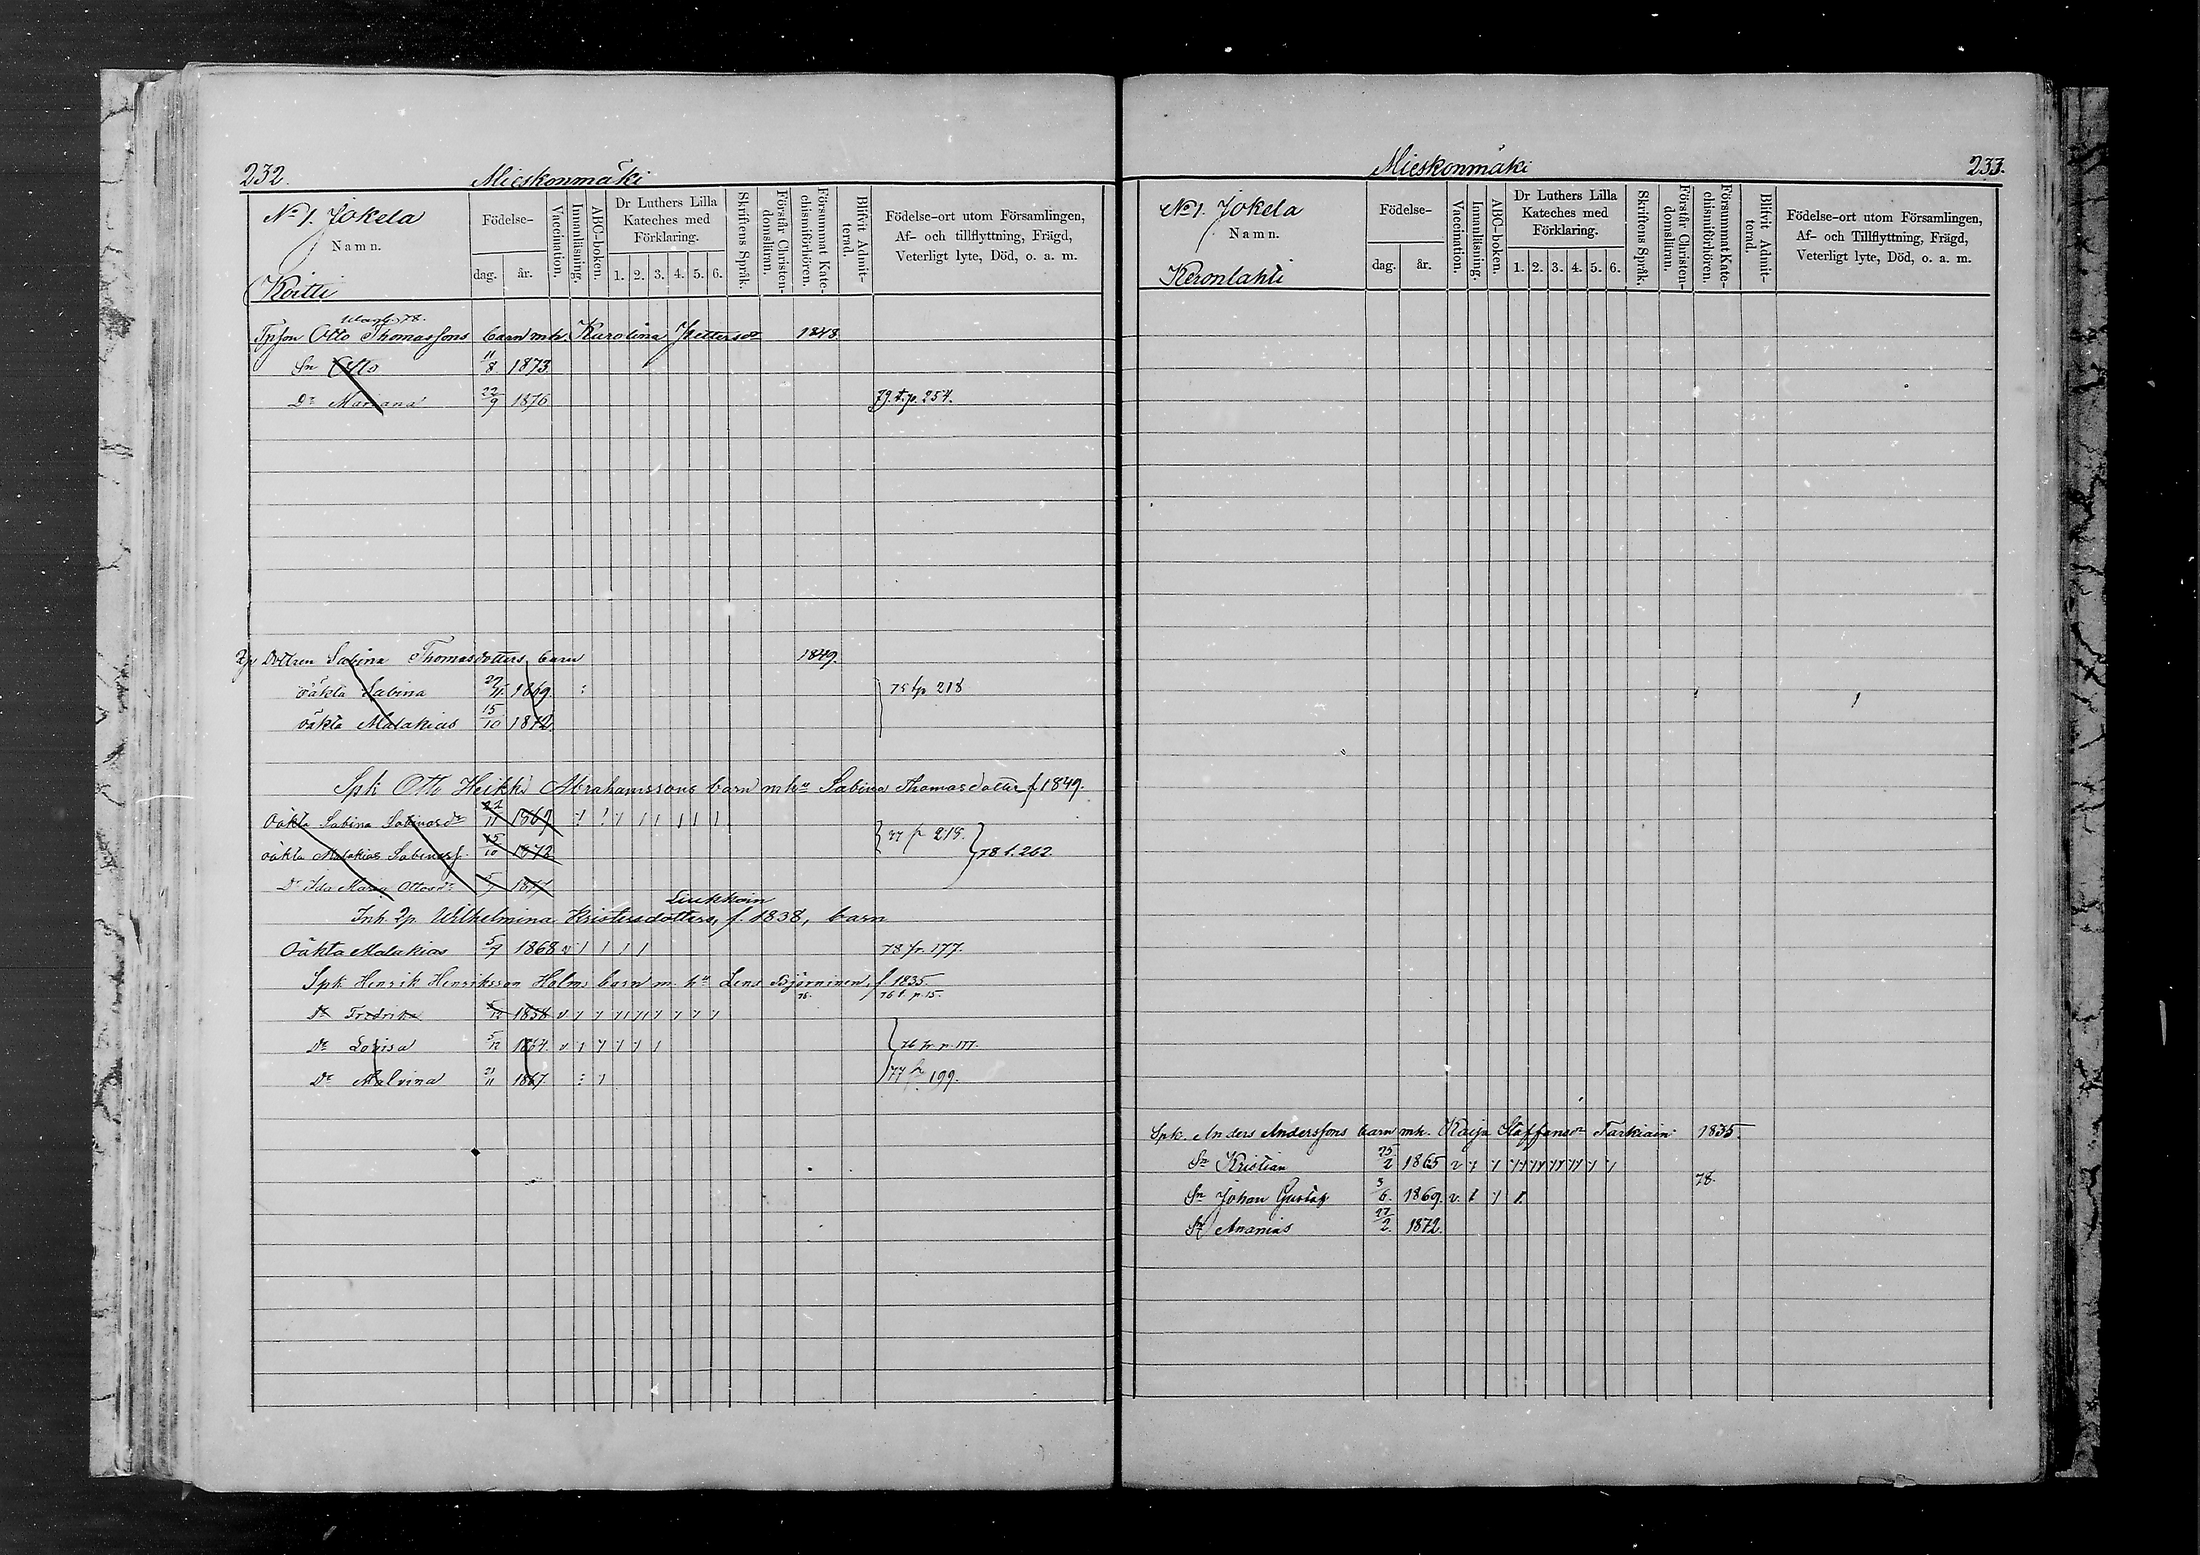 232.
Mieskonmäki
No 1. Jokela
Namn.
Koitti
Födelse-
dag.
år.
Vaccination.
Innanläsning.
ABC-boken.
Dr Luthers Lilla Kateches med Förklaring.
1. 2. 3. 4. 5. 6.
Skriftens Språk.
Förstår Christendomsläran.
Försummat Katechismiförhören.
Blifvit Admitterad.
Födelse-ort utom Församlingen,
Af- och tillflyttning, Frägd,
Veterligt lyte, Död, o. a. m.
78.
Otto Thomassons barn mh. Karolina Pettersdr 1848
Sn Otto 11/8 1873
Dr Mariana 22/9 1876 79. t. p. 254.
Dottren Sabina Thomasdotters barn 1849.
oäkta Sabina 27/11 1869. 75 t p 218
oäkta Malakias 15/10 1872
Spk Otto Heikki Abrahamssons barn m hu Sabina Thomasdotter f 1849.
oäkta Sabina Sabinasdr 27/11 1869 77 fr 218.
oäkta Malakias Sabinas s. 15/10 1872 78 t. 262.
Dr Ida Maria Ottosdr 1877
Liukkoin
Inh. Wilhelmina Kristersdotters, f. 1838, barn
Oäkta Malakias 5/9 1868 v 78 fr. 177.
Spk Henrik Henriksson Holms barn m. hu Lena Björninen, f 1835.
76. 76 t. p. 15.
Dr Fredrika 1858 v
Dr Lovisa 5/12 1864. v 76 fr. p. 177.
Dr Malvina 21/11 1867. 77 fr 199.
Mieskonmäki
233.
No 1. Jokela
Namn.
Keronlahti
Födelse-
dag.
år.
Vaccination.
Innanläsning.
ABC-boken.
Dr Luthers Lilla Kateches med Förklaring.
1. 2. 3. 4. 5. 6.
Skriftens Språk.
Förstår Christendomsläran.
Försummat Katechismiförhören.
Blifvit Admitterad.
Födelse-ort utom Församlingen,
Af- och Tillflyttning, Frägd,
Veterligt lyte, Död, o. a. m.
Spk. Anders Anderssons barn mh. Kaija Staffansdr Tarkiain 1835.
Sn Kristian 25/2 1865 v
78.
Sn Johan Gustaf 3/6. 1869. v.
Sn Ananias 27/2. 1872.